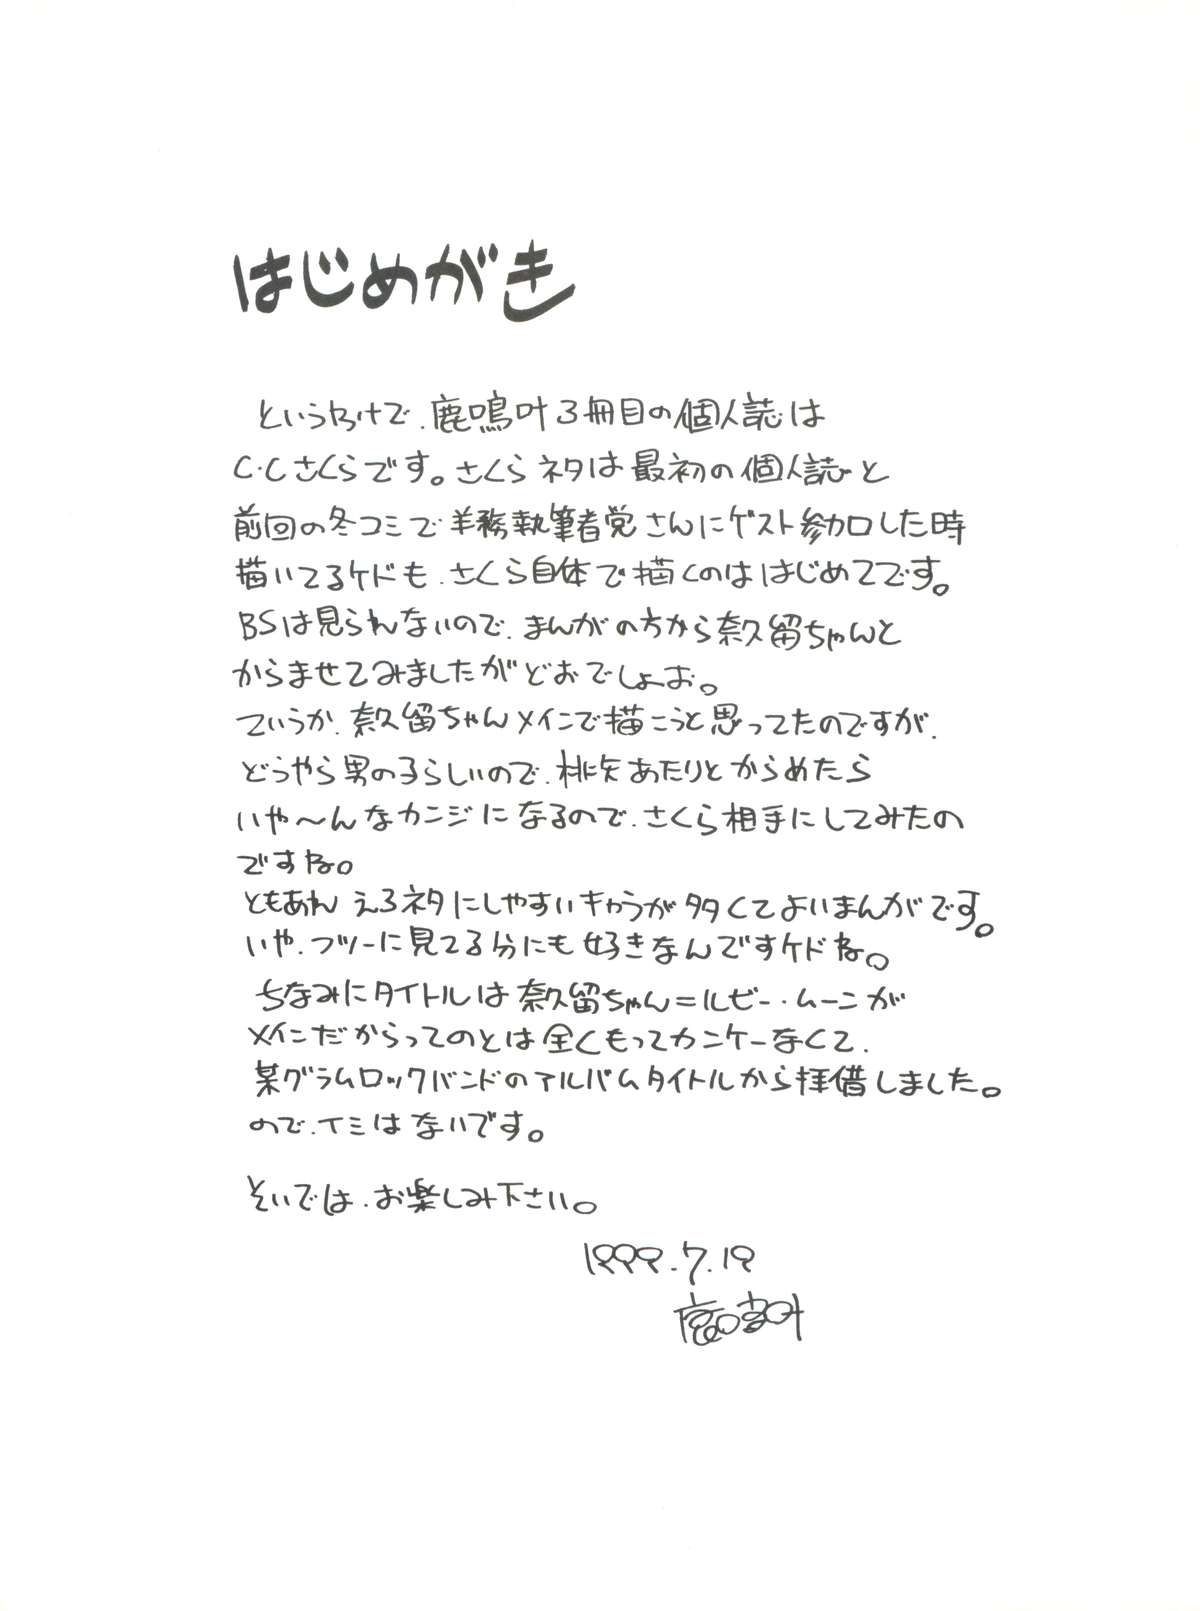 はじめがき
というわけで、鹿鳴叶3冊目の個人誌は
C.Cさくらです。さくらネタは最初の個人誌と
前回の冬コミで羊務執筆者党さんにゲスト参加した時
描いてるケドも、さくら自体で描くのははじめてです。
BSは見られないので、まんがの方から奈久留ちゃんと
からませてみましたがどおでしょお。
ていうか、奈久留ちゃんメインで描こうと思ってたのですが、
どうやら男の子らしいので、桃矢あたりとからめたら
いや〜んなカンジになるので、さくら相手にしてみたの
ですね。
ともあれ えろネタにしやすいキャラが多くてよいまんがです。
いや、フツーに見てる分にも好きなんですケドね。
ちなみにタイトルは奈久留ちゃん=ルビー・ムーンが
メインだからってのとは全くもってカンケーなくて、
某グラムロックバンドのアルバムタイトルから拝借しました。
ので、イミはないです。
そいでは、お楽しみ下さい。
1999.7.19
鹿鳴叶